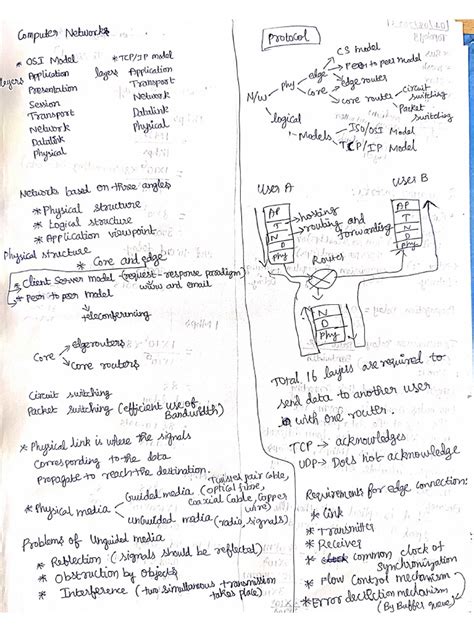 Computer Networks
* OSI Model * TCP/IP model
layers Application layers Application
Presentation Transport
Session Network
Transport Datalink
Network Physical
Datalink
Physical
Networks based on three angles
* Physical structure
* Logical structure
* Application viewpoint
Physical structure
* Core and edge
* Client Server model (request-response paradigm)
www and email
* Peer to peer model
teleconferencing
Core
edge routers
core routers
Circuit switching
Packet switching (efficient use of
Bandwidth)
* Physical link is where the signals
Corresponding to the data
Propagate to reach the destination.
* Physical media
Guided media (Twisted pair cable,
optical fibre,
Coaxial Cable, Copper
wire)
unGuided media (radio signals)
Problems of Unguided media
* Reblection (signals should be reflected)
* Obstruction by Objects
* Interference (two simultaneous transmission
takes place)
Protocol
N/w
Phy
edge
CS model
Peer to peer model
core
edge routers
core router
Circuit
switching
Packet
switching
logical
Models
ISO/OSI Model
TCP/IP Model
User A
User B
AP
T
N
D
Phy
hosting
routing and
forwarding
AP
T
N
D
Phy
Router
N
D
Phy
Total 16 layers are required to
send data to another user
with one router.
TCP → acknowledges
UDP → Does not acknowledge
Requirements for edge connection:
* Link
* Transmitter
* Receiver
* common clock of
synchronization
* Flow Control mechanism
* Error detection mechanism
(By Buffer queue)